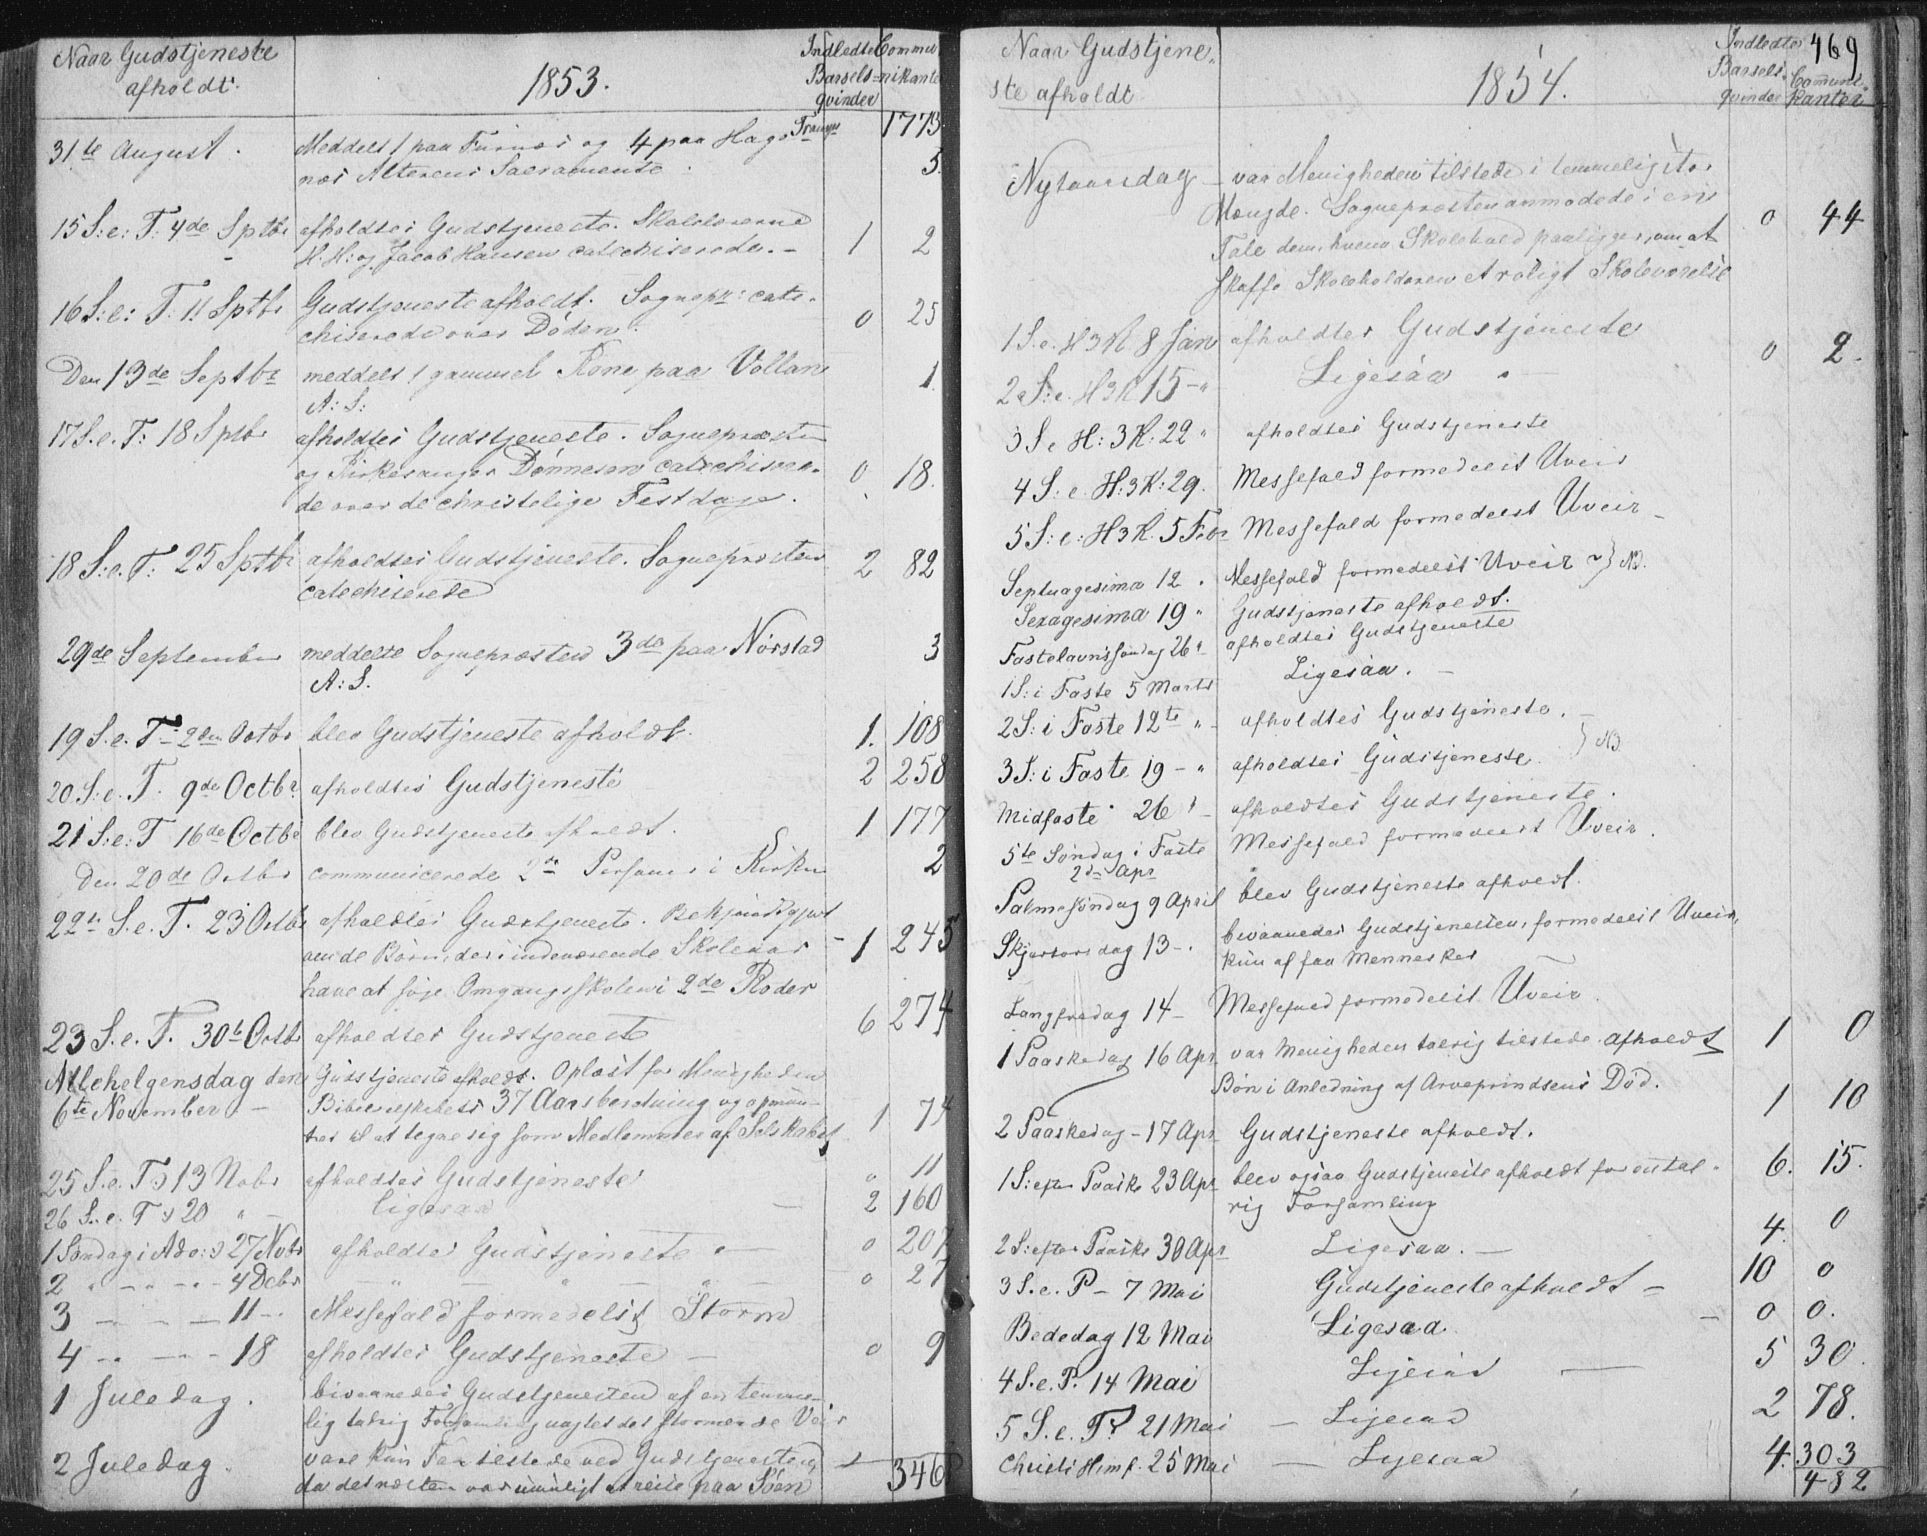 Naar Gudstjeneste
afholdt.
1853.
Indledte Commu
Barsels= nikante
qvinder
Transp 1773
31te August. Meddelt 1 paa Furnæs og 4 paa Hags
næs Alterens Sacramente. 5.
15 S:e: T: 4de Sptbr afholdtes Gudstjeneste. Skolelærerne 1 2
H.H: og Jacob Hansen catechiserede. -
16 S:e: T: 11 Sptbr Gudstjeneste afholdt. Sognepr: cate- 0 25
chiserede over Døden.
Den 13de Septbr meddelt 1 gammel Kone paa Vollan 1
A: S:
17 S.e. T: 18 Sptbr afholdtes Gudstjeneste. Sognepræsten
og Kirkesanger Dønnesen catechisere- 0 18.
de over de christelige Festdage.
18 S:e. T: 25 Sptbr afholdtes Gudstjeneste. Sognepræsten 2 82
catechiserede
29de September meddelte Sognepræsten 3de paa Nørstad 3
A: S.
19 S.e. T. 2den Octbr blev Gudstjeneste afholdt. 1. 108
20. S:e. T. 9de Octbr. afholdtes Gudstjeneste 2 258
21 S:e: T 16de Octbr blev Gudstjeneste afholdt. 1 177
Den 20de Octbr communicerede 2de Personer i Kirken 2
22de S.e. T. 23 Octbr afholdtes Gudstjeneste. Bekjendtgjort
om de Børn, der i indeværende Skoleaar - 1 245
have at søge Omgangsskolen i 2de Roder
23 S.e. T. 30te Octbr afholdtes Gudstjeneste 6 274
Allehelgensdag den Gudstjeneste afholdt. Oplæst for Menigheden
6te November - Bibelselskabets 37 Aarsberetning og opmun- 1 74
tret til at tegne sig som Medlemmer af Selskabet
25 S.e. T. 13 Nobr afholdtes Gudstjeneste 0 11
26 S.e. T. 20 " - ligesaa - 2 160
1 Søndag i Adv: 27 Nobr afholdtes Gudstjeneste - 0 207
2 " - - - 4 Debr - " - " - " - 0 27
3 - - - 11 - Messefald formedelst Storm
4 - - - 18 afholdtes Gudstjeneste - 0 9
1 Juledag. bivaanedes Gudstjenesten af en temme-
lig talrig Forsamling uagtet det stormende Veir
2 Juledag. vare kun Faa tilstede ved Gudstjenesten,
da det næsten var umuligt at reise paa Søen 346
469
Naar Gudstjene-
ste afholdt
1854.
Indledte
Barsels- Communi-
qvinder kanter
Nytaarsdag - var Menigheden tilstede i temmelig stor
Mængde. Sognepræsten anmodede i en 0 44
Tale dem, hvem Skolehold paaligger, om at
skaffe Skoleholderen et roligt Skoleværelse
1 S.e. H3K 8 Jan afholdtes Gudstjeneste 0 2.
2 S:e. H3K 15 - " Ligesaa " -
3 S e H: 3K: 22 " afholdtes Gudstjeneste
4 S: e. H:3K: 29. Messefald formedelst Uveir
5 S: e: H3K. 5 Febr Messefald formedelst Uveir -
Septuagesima 12 . Messefald formedelst Uveir } NB.
Sexagesima 19 " Gudstjeneste afholdt.
Fastelavnssøndag 26 " afholdtes Gudstjeneste
1 S: i Faste 5 Marts Ligesaa. -
2 S: i Faste 12te " - afholdtes Gudstjeneste. -
3 S: i Faste 19 - " afholdtes Gudstjeneste. } NB.
Midfaste 26 " - afholdtes Gudstjeneste.
5te Søndag i Faste Messefald formedelst Uveir.
2den Apr
Palmesøndag 9 April blev Gudstjeneste afholdt.
Skjærtorsdag 13 - . bivaanedes Gudstjenesten, formedelst Uveir,
kun af faa Mennesker
Langfredag 14 - Messefald formedelst Uveir.
1 Paaskedag 16 Apr var Menigheden talrig tilstede. Afholdt 1 0
Bøn i Anledning af Arveprindsens Død.
2 Paaskedag - 17 Apr Gudstjeneste afholdt. 1 10
1 S: efter Paaske 23 Apr blev ogsaa Gudstjeneste afholdt for en tal- 6. 15.
rig Forsamling
2 S: efter Paaske 30 Apr Ligesaa. - 4. 0
3 S.e. P - 7 Mai Gudstjeneste afholdt - 10 0
Bededag 12 Mai Ligesaa. - 0 0.
4 S.e. P. 14 Mai Ligesaa - 5 30.
5 S.e. P. 21 Mai - Ligesaa 2 78.
Christi Himf. 25 Mai - Ligesaa 4. 303
482